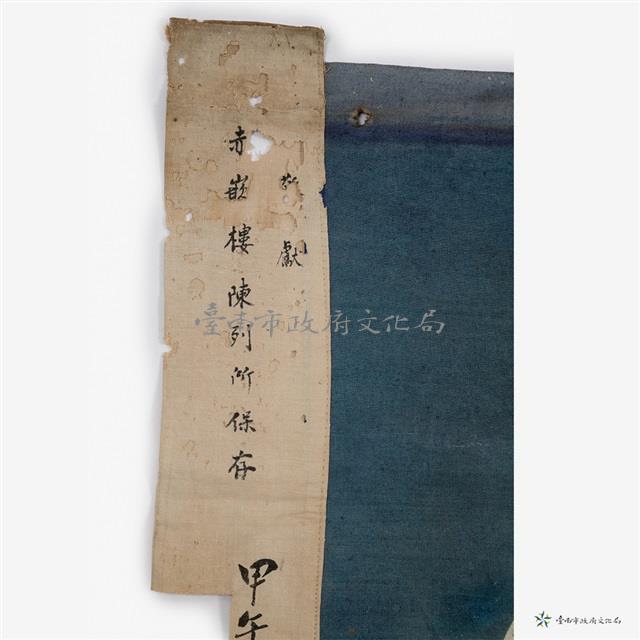 敬獻
赤嵌樓陳列所保存
甲午
臺南市政府文化局
臺南市政府文化局